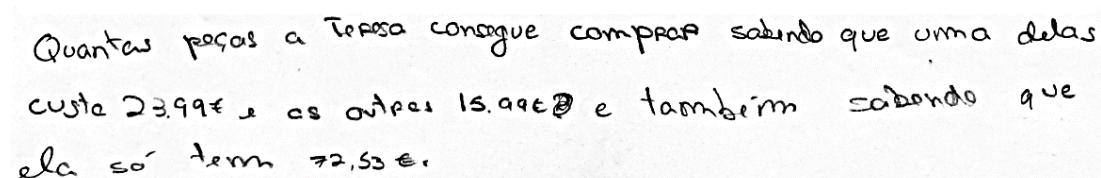 Quantas peças a Teresa consegue comprar sabendo que uma delas
custa 23.99€ e as outras 15.99€ e também sabendo que
ela só tem 72,53 €.